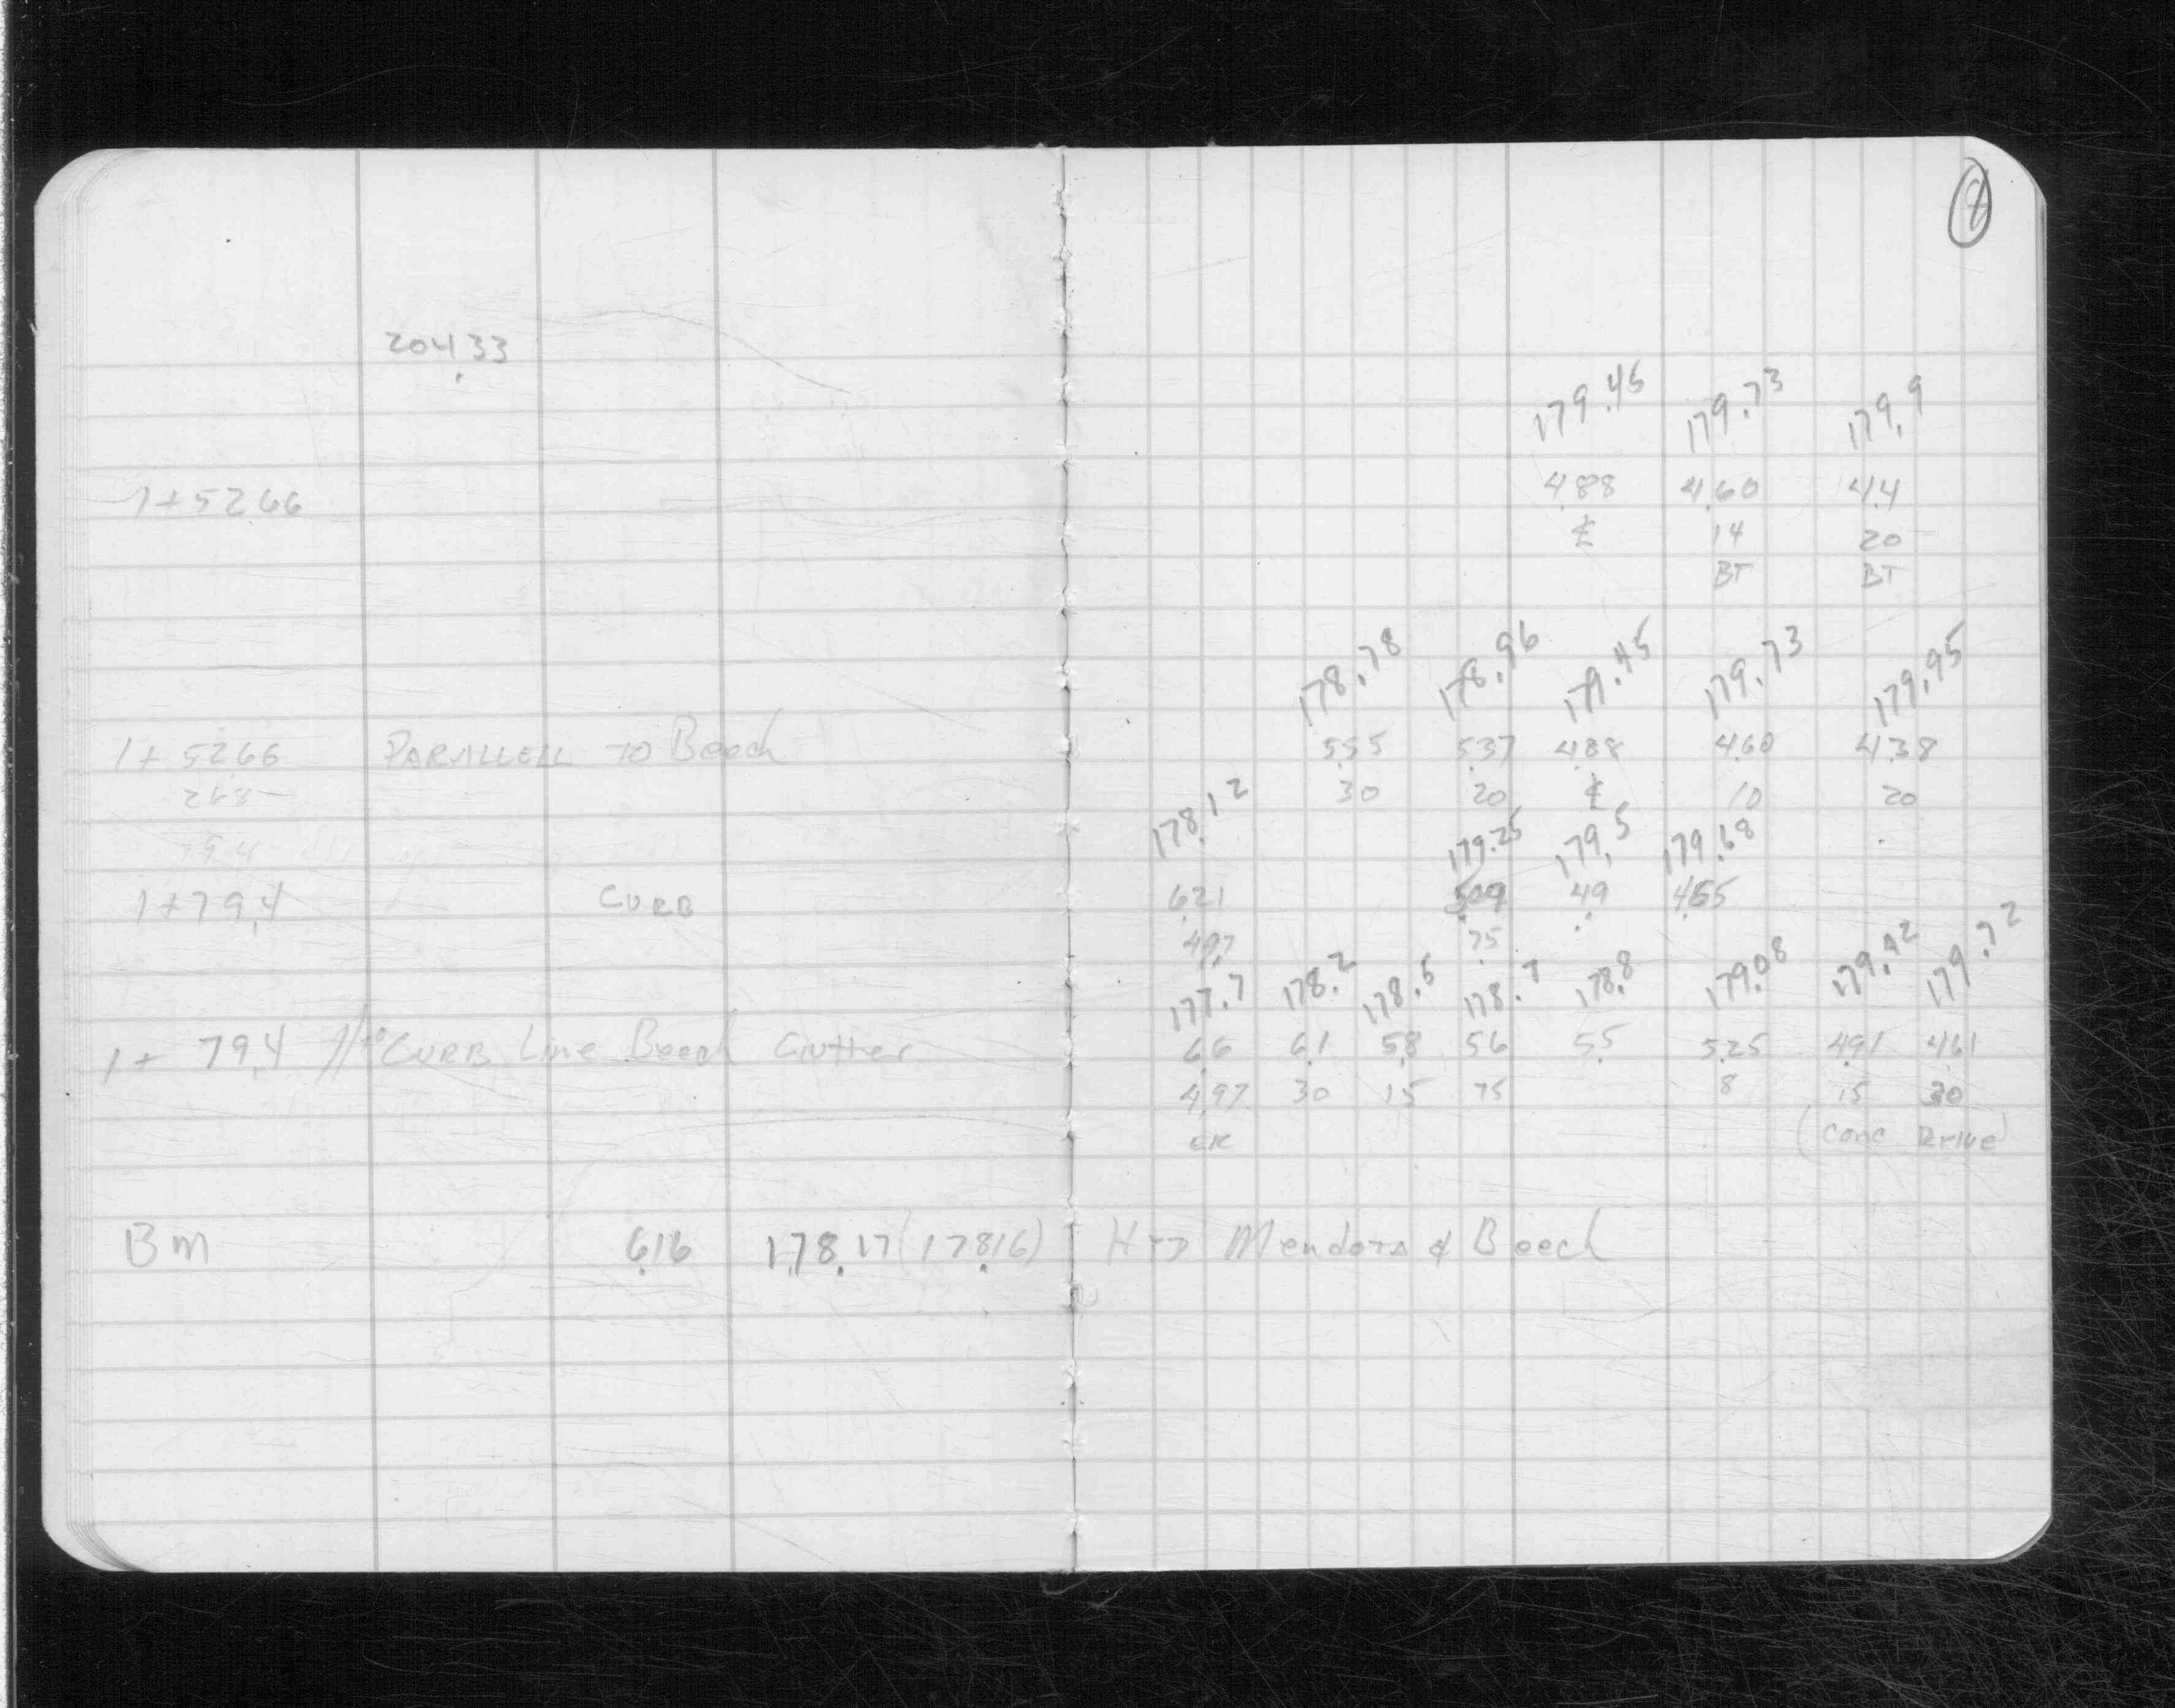 8
204.33
179.45 179.73 179.9
1+52.66 4.88 4.60 4.4
℄ 14 20
BT BT
178.78 178.96 179.45 179.73 179.95
1+52.66 PARALLELL TO Beech 5.55 5.37 4.88 4.60 4.38
30 20 ℄ 10 20
178.12 179.25 179.5 179.68
79.4
1+79.4 CURB 6.21 5.09 4.9 4.65
49.7 75
177.7 178.2 178.5 178.7 178.8 179.08 179.42 179.72
1+ 79.4 // to CURB Line Beech Gutter 6.6 6.1 5.8 5.6 5.5 5.25 4.91 4.61
4.97 30 15 75 8 15 30
(Conc Drive)
BM 6.16 178.17 (178.16) Mendota & Beech